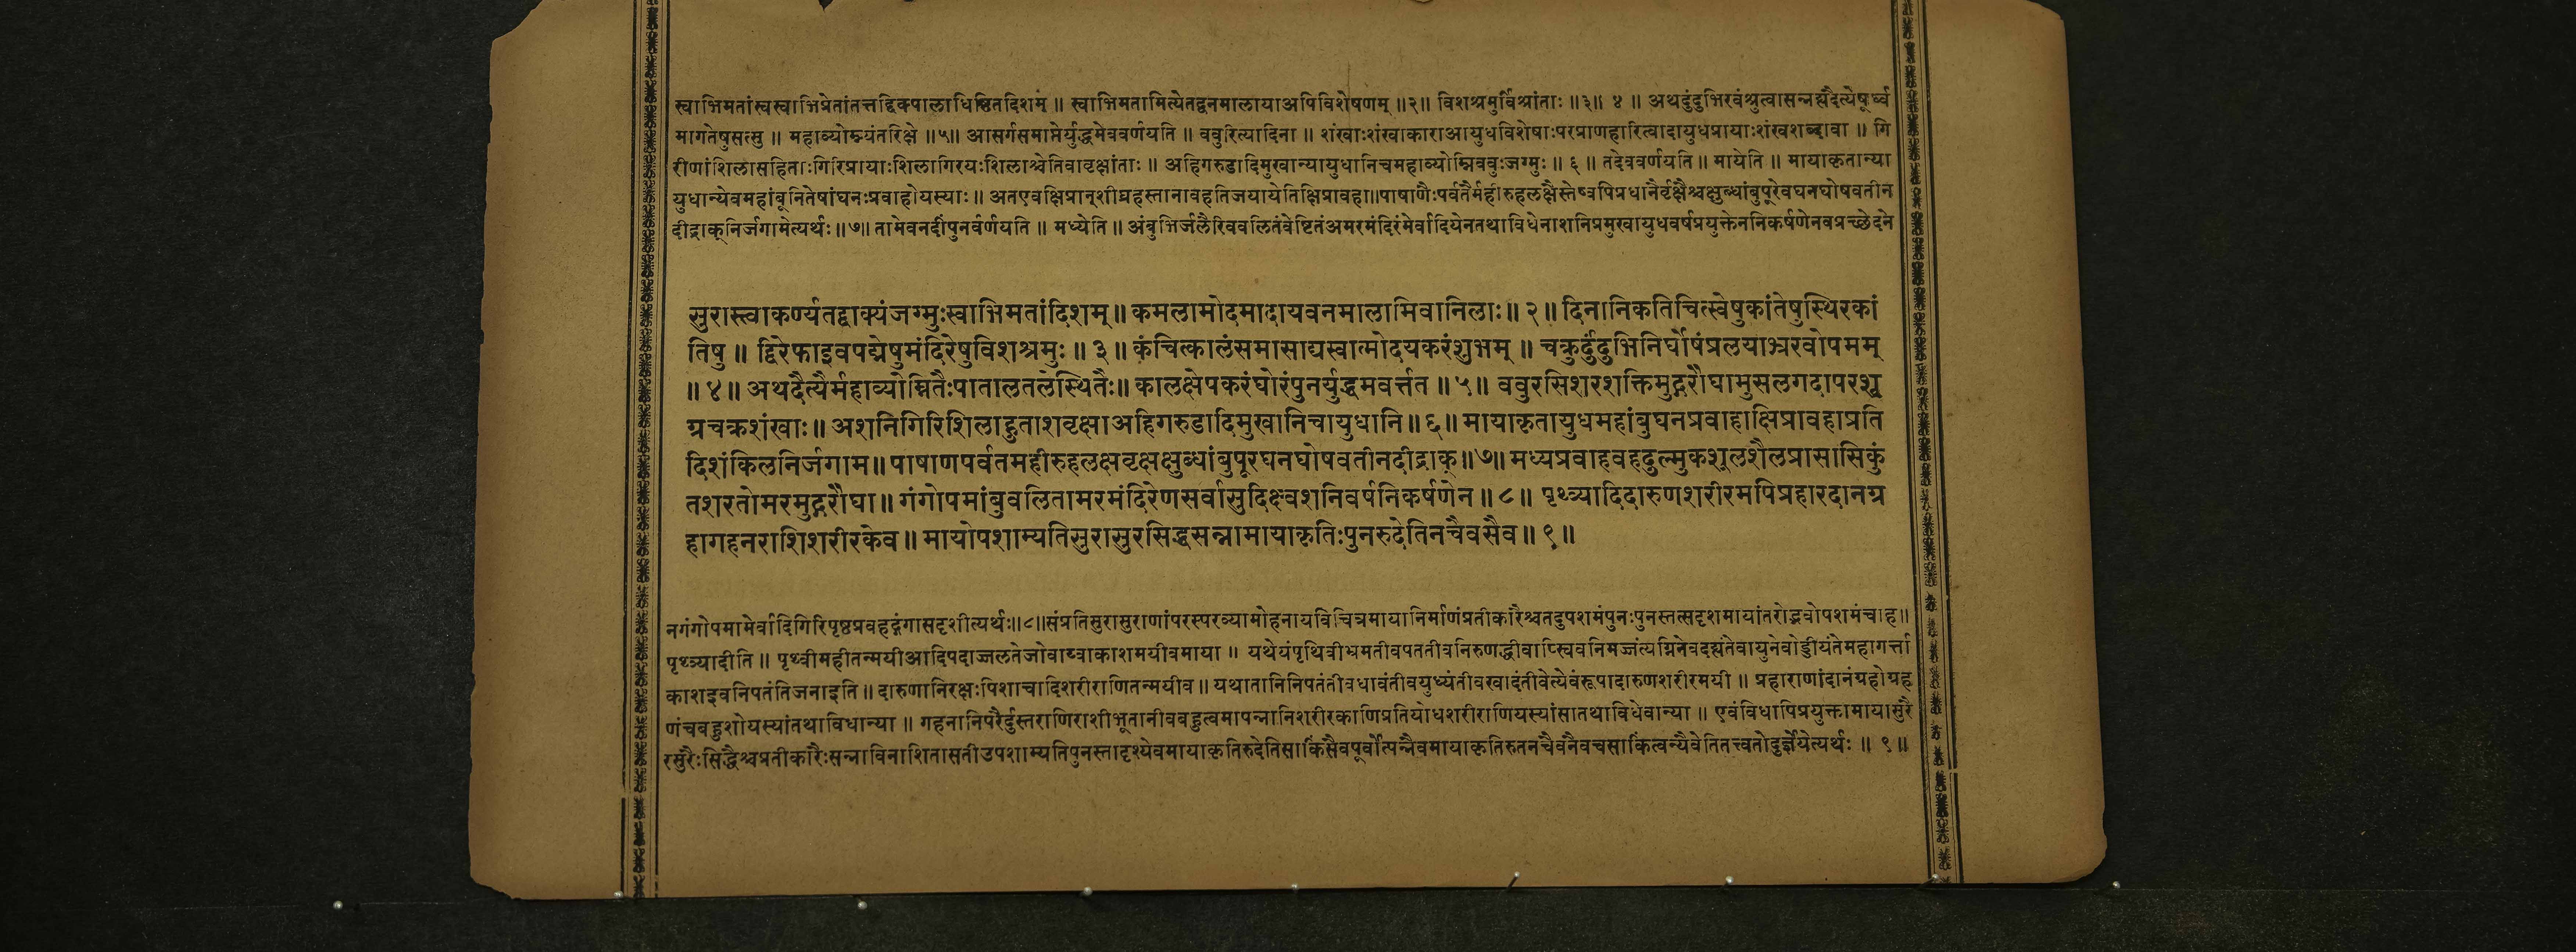 स्वाभिमतांस्वस्वाभिप्रेतांतत्तद्दिक्पालाधिष्ठितदिशम् ॥ स्वाभिमतामित्येतद्वनमालायाअपिविशेषणम् ॥२॥ विशश्रमुर्विश्रांताः ॥३॥ ४ ॥ अथदुंदुभिरवंश्रुत्वासन्नद्धदैत्येषूर्ध्व
मागतेषुसत्सु ॥ महाव्योम्न्यंतरिक्षे ॥५॥ आसर्गसमाप्तेर्युद्धमेववर्णयति ॥ ववुरित्यादिना ॥ शंखाःशंखाकाराआयुधविशेषाःपरप्राणहारित्वादायुधप्रायाःशंखशब्दावा ॥ गि
रीणांशिलासहिताःगिरिप्रायाःशिलागिरयःशिलाश्चेतिवावृक्षांताः ॥ अहिगरुडादिमुखान्यायुधानिचमहाव्योम्निववुःजग्मुः ॥ ६ ॥ तदेववर्णयति ॥ मायेति ॥ मायाकृतान्या
युधान्येवमहांबूनितेषांघनःप्रवाहोयस्याः ॥ अतएवक्षिप्रान्शीघ्रहस्तानावहतिजयायेतिक्षिप्रावहा॥पाषाणैःपर्वतैर्महीरुहलक्षैस्तेष्वपिप्रधानैर्वृक्षैश्चक्षुब्धांबुपूरेवघनघोषवतीन
दीद्राक्निर्जगामेत्यर्थः ॥७॥ तामेवनदींपुनर्वर्णयति ॥ मध्येति ॥ अंबुभिर्जलैरिववलितंवेष्टितंअमरमंदिरंमेर्वादियेनतथाविधेनाशनिप्रमुखायुधवर्षप्रयुक्तेननिकर्षणेनवप्रच्छेदने
सुरास्त्वाकर्ण्यतद्वाक्यंजग्मुःस्वाभिमतांदिशम्॥ कमलामोदमादायवनमालामिवानिलाः॥ २॥ दिनानिकतिचित्स्वेषुकांतेषुस्थिरकां
तिषु ॥ द्विरेफाइवपद्मेषुमंदिरेषुविशश्रमुः ॥ ३ ॥ कंचित्कालंसमासाद्यस्वात्मोदयकरंशुभम् ॥ चक्रुर्दुंदुभिनिर्घोषंप्रलयाभ्ररवोपमम्
॥ ४॥ अथदैत्यैर्महाव्योम्नितैःपातालतलस्थितैः॥ कालक्षेपकरंघोरंपुनर्युद्धमवर्त्तत ॥ ५॥ ववुरसिशरशक्तिमुद्गरौघामुसलगदापरशू
ग्रचक्रशंखाः॥ अशनिगिरिशिलाहुताशवृक्षाअहिगरुडादिमुखानिचायुधानि॥ ६॥ मायाकृतायुधमहांबुघनप्रवाहाक्षिप्रावहाप्रति
दिशंकिलनिर्जगाम॥ पाषाणपर्वतमहीरुहलक्षवृक्षक्षुब्धांबुपूरघनघोषवतीनदीद्राक्॥७॥ मध्यप्रवाहवहदुल्मुकशूलशैलप्रासासिकुं
तशरतोमरमुद्गरौघा॥ गंगोपमांबुवलितामरमंदिरेणसर्वासुदिक्ष्वशनिवर्षनिकर्षणेन ॥ ८॥ पृथ्व्यादिदारुणशरीरमपिप्रहारदानग्र
हागहनराशिशरीरकेव॥ मायोपशाम्यतिसुरासुरसिद्धसन्नामायाकृतिःपुनरुदेतिनचैवसैव॥ ९॥
नगंगोपमामेर्वादिगिरिपृष्ठप्रवहद्गंगासदृशीत्यर्थः॥८॥संप्रतिसुरासुराणांपरस्परव्यामोहनायविचित्रमायानिर्माणंप्रतीकारैश्चतदुपशमंपुनःपुनस्तत्सदृशमायांतरोद्भवोपशमंचाह॥
पृथ्व्यादीति ॥ पृथ्वीमहीतन्मयीआदिपदाज्जलतेजोवाय्वाकाशमयीवमाया ॥ यथेयंपृथिवीभ्रमतीवपततीवनिरुणद्धीवाप्स्विवनिमज्जंत्यग्निनेवदह्यंतेवायुनेवोड्डीयंतेमहागर्त्ता
काशइवनिपतंतिजनाइति ॥ दारुणानिरक्षःपिशाचादिशरीराणितन्मयीव ॥ यथातानिनिपतंतीवधावंतीवयुध्यंतीवखादंतीवेत्येवंरूपादारुणशरीरमयी ॥ प्रहाराणांदानंग्रहोग्रह
णंचबहुशोयस्यांतथाविधान्या ॥ गहनानिपरैर्दुस्तराणिराशीभूतानीवबहुत्वमापन्नानिशरीरकाणिप्रतियोधशरीराणियस्यांसातथाविधेवान्या ॥ एवंविधापिप्रयुक्तामायासुरै
रसुरैःसिद्धैश्चप्रतीकारैःसन्नाविनाशितासतीउपशाम्यतिपुनस्तादृश्येवमायाकृतिरुदेतिसाकिंसैवपूर्वोत्पन्नैवमायाकृतिरुतनचैवनैवचसाकिंत्वन्यैवेतितत्त्वतोदुर्ज्ञेयेत्यर्थः ॥ ९॥